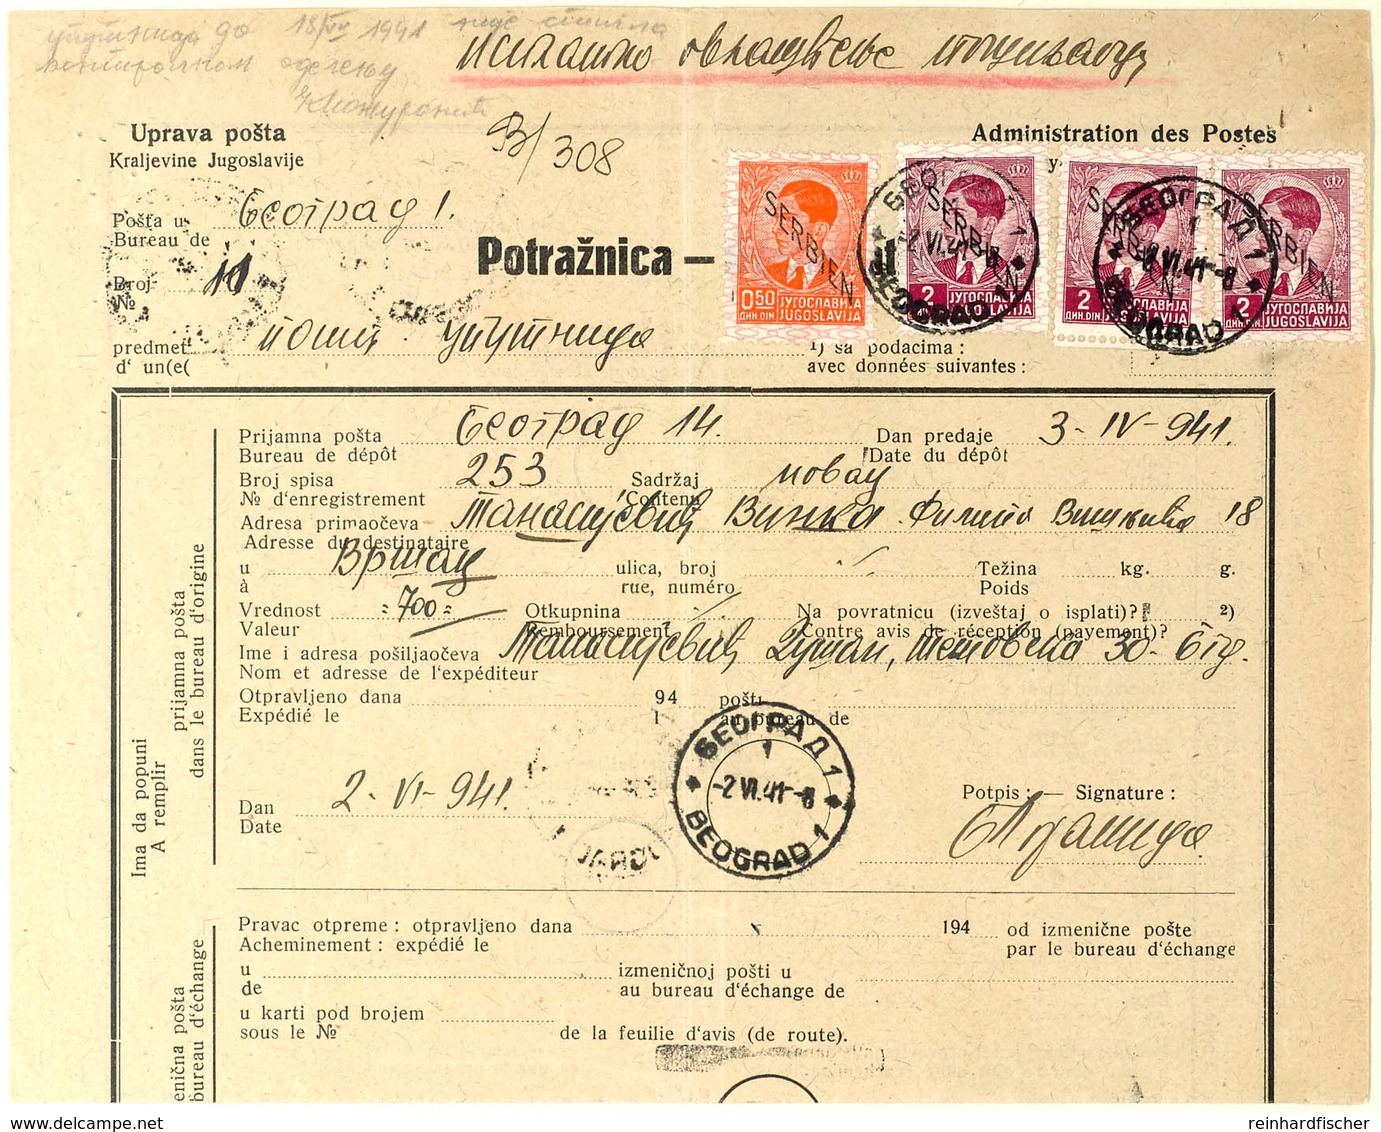 упутница до 18/IV 1941 није стигла
контролном одељењу
исплатно обавештење пошиљаоцу
В/308
Uprava pošta
Kraljevine Jugoslavije
Administration des Postes
Pošta u Београд 1.
Bureau de
Broj 11
№
Potražnica —
predmet пошт упутница
d' un(e(
1) sa podacima :
avec données suivantes :
0.50 ДИН.DIN ЈУГОСЛАВИЈА JUGOSLAVIJA SERBIEN
2 ДИН.DIN ЈУГОСЛАВИЈА JUGOSLAVIJA SERBIEN
2 ДИН.DIN ЈУГОСЛАВИЈА JUGOSLAVIJA SERBIEN
2 ДИН.DIN ЈУГОСЛАВИЈА JUGOSLAVIJA SERBIEN
БЕОГРАД 1 1 -2 VI.41-8 BEOGRAD 1
БЕОГРАД 1 1 -2 VI.41-8 BEOGRAD 1
Prijamna pošta Београд 14. Dan predaje 3-IV-941.
Bureau de dépôt Date du dépôt
Broj spisa 253 Sadržaj новац
№ d'enregistrement Contenu
Adresa primaočeva Танасијевић Винка Филипа Вишњића 18
Adresse du destinataire
u Вршац ulica, broj Težina kg. g.
à rue, numéro Poids
Vrednost =700= Otkupnina Na povratnicu (izveštaj o isplati)? 2)
Valeur Remboursement Contre avis de réception (payement)?
Ime i adresa pošiljaočeva Танасијевић Душан, 30- Бгд.
Nom et adresse de l'expéditeur
Otpravljeno dana 94 pošti
Expédié le 1 au bureau de
БЕОГРАД 1 1 -2 VI.41-8 BEOGRAD 1
Dan 2-VI-941.
Date
Potpis : — Signature :
Ima da popuni
A remplir
prijamna pošta
dans le bureau d'origine
Pravac otpreme : otpravljeno dana 194 od izmenične pošte
Acheminement : expédié le par le bureau d'échange
u izmeničnoj pošti u
de au bureau d'échange de
u karti pod brojem
sous le № de la feuille d'avis (de route).
enična pošta
bureau d'échange
delcampe.net
reinhardfischer